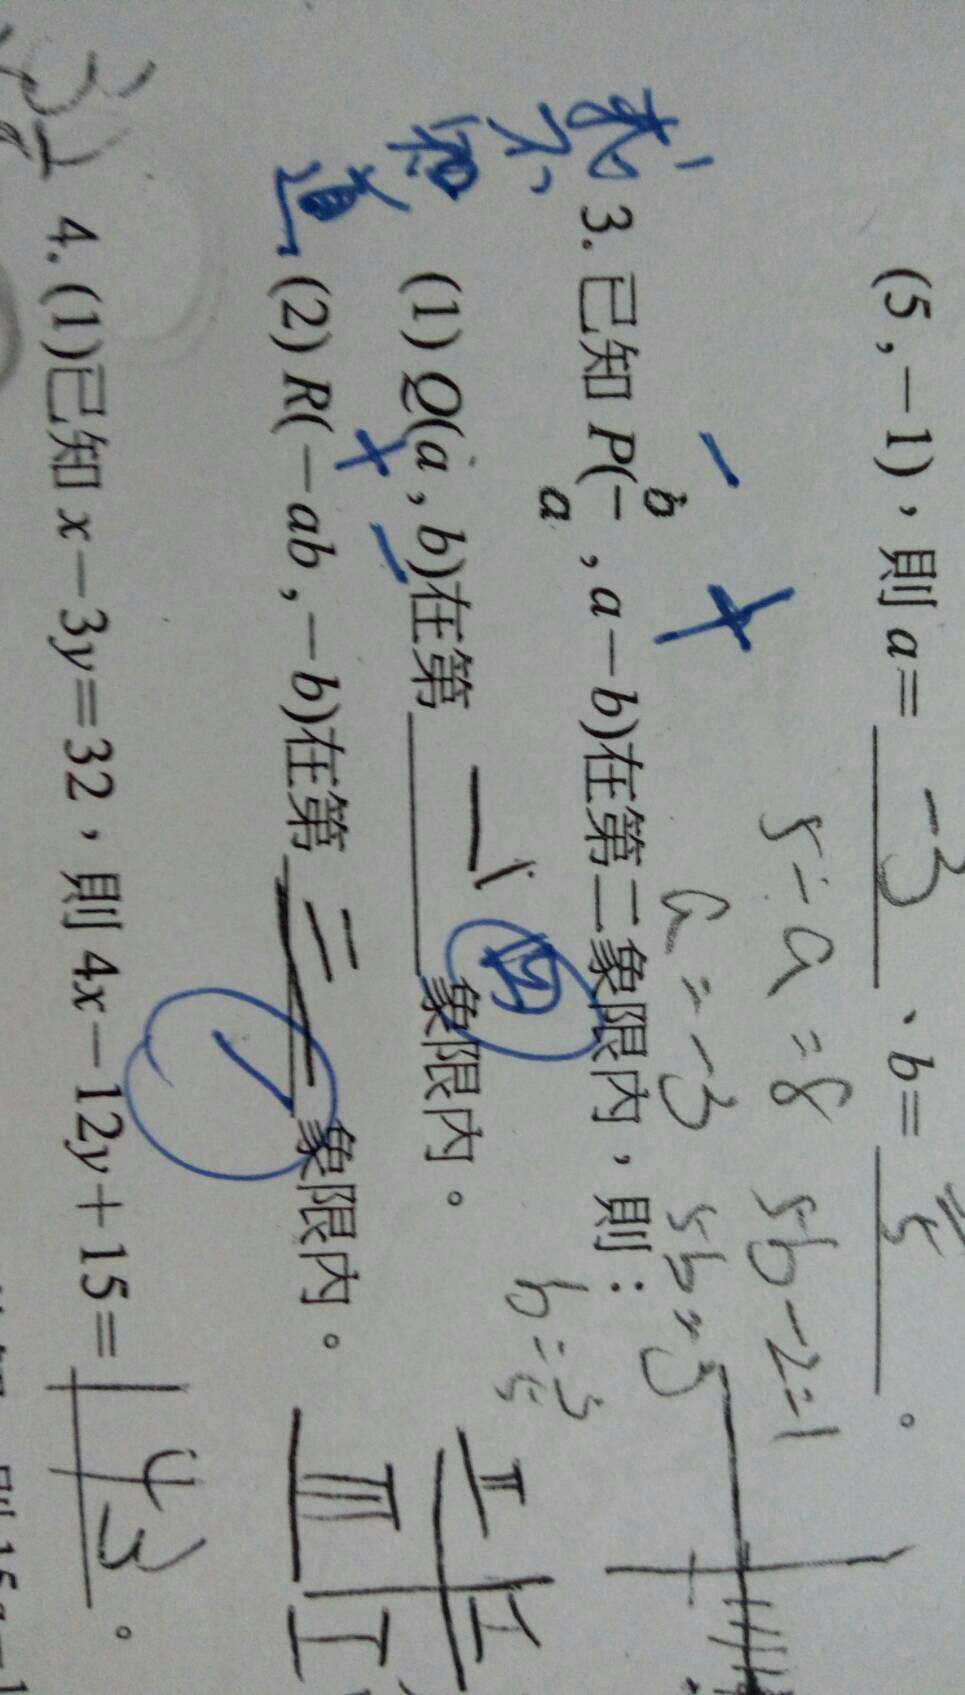 (5,-1),則 a= -3 、b= 。
5-a=8 5b-2=1
a=-3 5b=3
b=3/5
我不知道
- +
3. 已知 P(b/a,a-b)在第二象限內,則:
(1) Q(a,b)在第 一 四 象限內。
+ -
(2) R(-ab,-b)在第 二 一 象限內。
4. (1)已知 x-3y=32,則 4x-12y+15= 143 。
II I
III I